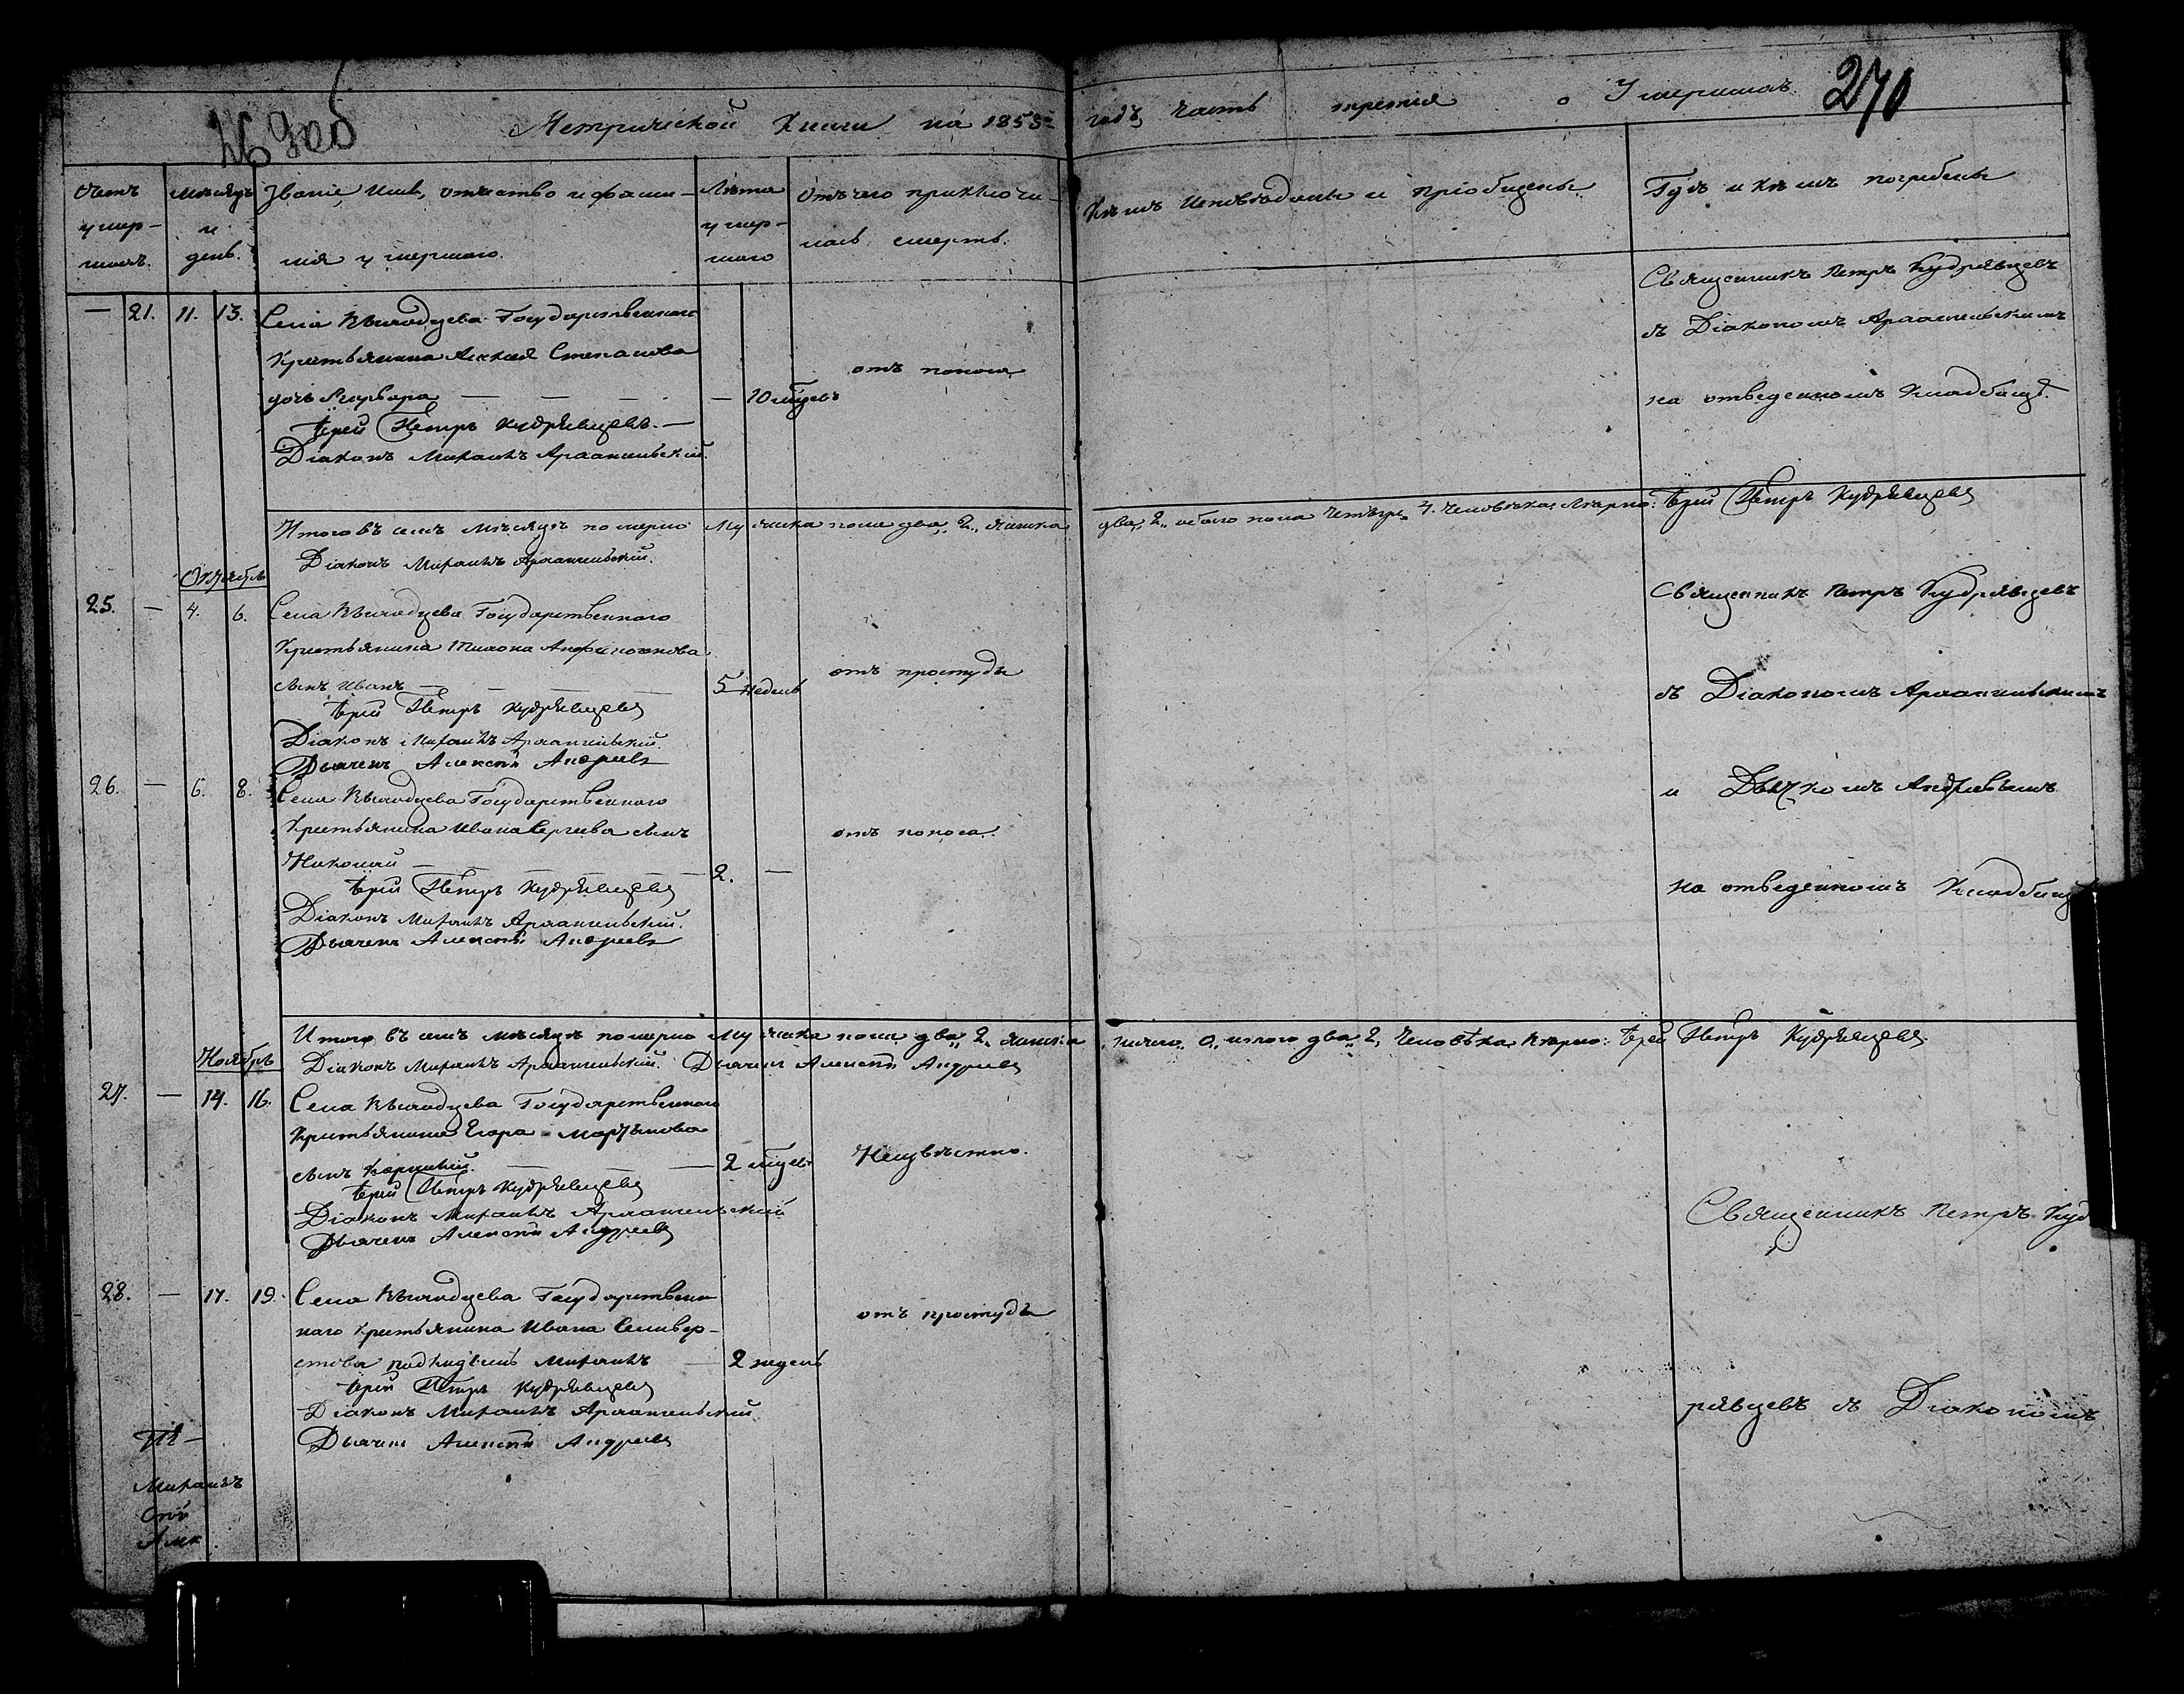 270
Метрической Книги на 1853й годъ, часть третія о Умершихъ.
Счетъ умер-
шихъ.
Мѣсяцъ
и
день.
Званіе, имя, отчество и фами-
лія умершаго.
Лѣта
умер-
шаго
Отъ чего приключи-
лась смерть.
Кѣмъ исповѣданы и пріобщены
Гдѣ и кѣмъ погребены
— 21. 11. 13. Села Государственнаго
Крестьянина Алексѣя Степанова
дочь Варвара — — — — 10 мѣсцевъ
отъ поноса
Іерей Петръ Кудрявцевъ. —
Діаконъ Михаилъ Архангельскій.
Священникъ Петръ Кудрявцевъ
съ Діакономъ Архангельскимъ
на отведенномъ Кладбищѣ.
Итого въ семъ мѣсяцѣ померло мужеска пола два „2„ женска два „2„ обоего пола четыре 4. человѣка. Вѣрно: Іерей Петръ Кудрявцевъ
Діаконъ Михаилъ Архангельскій.
Октябрь
25. — 4. 6. Села Государственнаго
Крестьянина
сынъ Иванъ — — — — 5 недель
отъ простуды
Іерей Петръ Кудрявцевъ
Діаконъ Михаилъ Архангельскій.
Дьячекъ Алексѣй Андреевъ
26. — 6. 8. Села Государственнаго
Крестьянина Ивана Сергѣева сынъ
Николай — — — — — 2. —
отъ поноса.
Іерей Петръ Кудрявцевъ
Діаконъ Михаилъ Архангельскій.
Дьячекъ Алексѣй Андреевъ
Священникъ Петръ Кудрявцевъ
съ Діакономъ Архангельскимъ
и Дьячкомъ Андреевымъ
на отведенномъ Кладбищ
Итого въ семъ мѣсяцѣ померло мужеска пола два „2„ женска ничего „0„ итого два „2„ Человѣка Вѣрно: Іерей Петръ Кудрявцевъ.
Діаконъ Михаилъ Архангельскій. Дьячекъ Алексѣй Андреевъ
Ноябрь
27. — 14. 16. Села Государственнаго
Крестьянина Егора Мартынова
сынъ — — — 2 мѣсцев
Неизвѣстно.
Іерей Петръ Кудрявцевъ
Діаконъ Михаилъ Архангельскій
Дьячекъ Алексѣй Андреевъ
28. — 17. 19. Села Государствен
наго Крестьянина Ивана Селивер-
стова подкидышъ Михаилъ — 2 недель
отъ простуды
Іерей Петръ Кудрявцевъ
Діаконъ Михаилъ Архангельскій.
Дьячекъ Алексѣй Андреевъ
Священникъ Петръ Куд
рявцевъ съ Діакономъ
Михаилъ